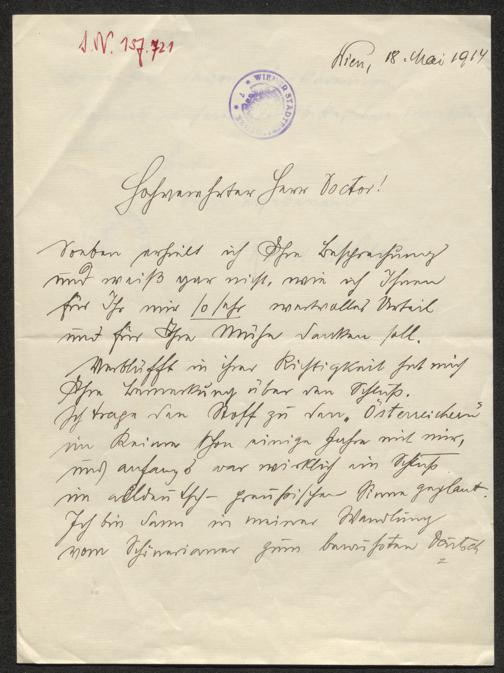 I.N. 157.721
Wien, 18. Mai 1914
WIENER STADT
Hochverehrter Herr Doctor!
Soeben erhielt ich Ihre Besprechung
und weiß gar nicht, wie ich Ihnen
für Ihr mir so sehr wertvolles Urteil
und für Ihre Mühe danken soll.
Verblüfft in ihrer Richtigkeit hat mich
Ihre Bemerkung über den Schluß.
Ich trage den Stoff zu den „Österreichern"
im Keime schon einige Jahre mit mir,
und anfangs war wirklich ein Schluß
im alldeutsch-preußischen Sinne geplant.
Ich bin dann in meiner Wandlung
vom Schönerianer zum bewußten Deutsch